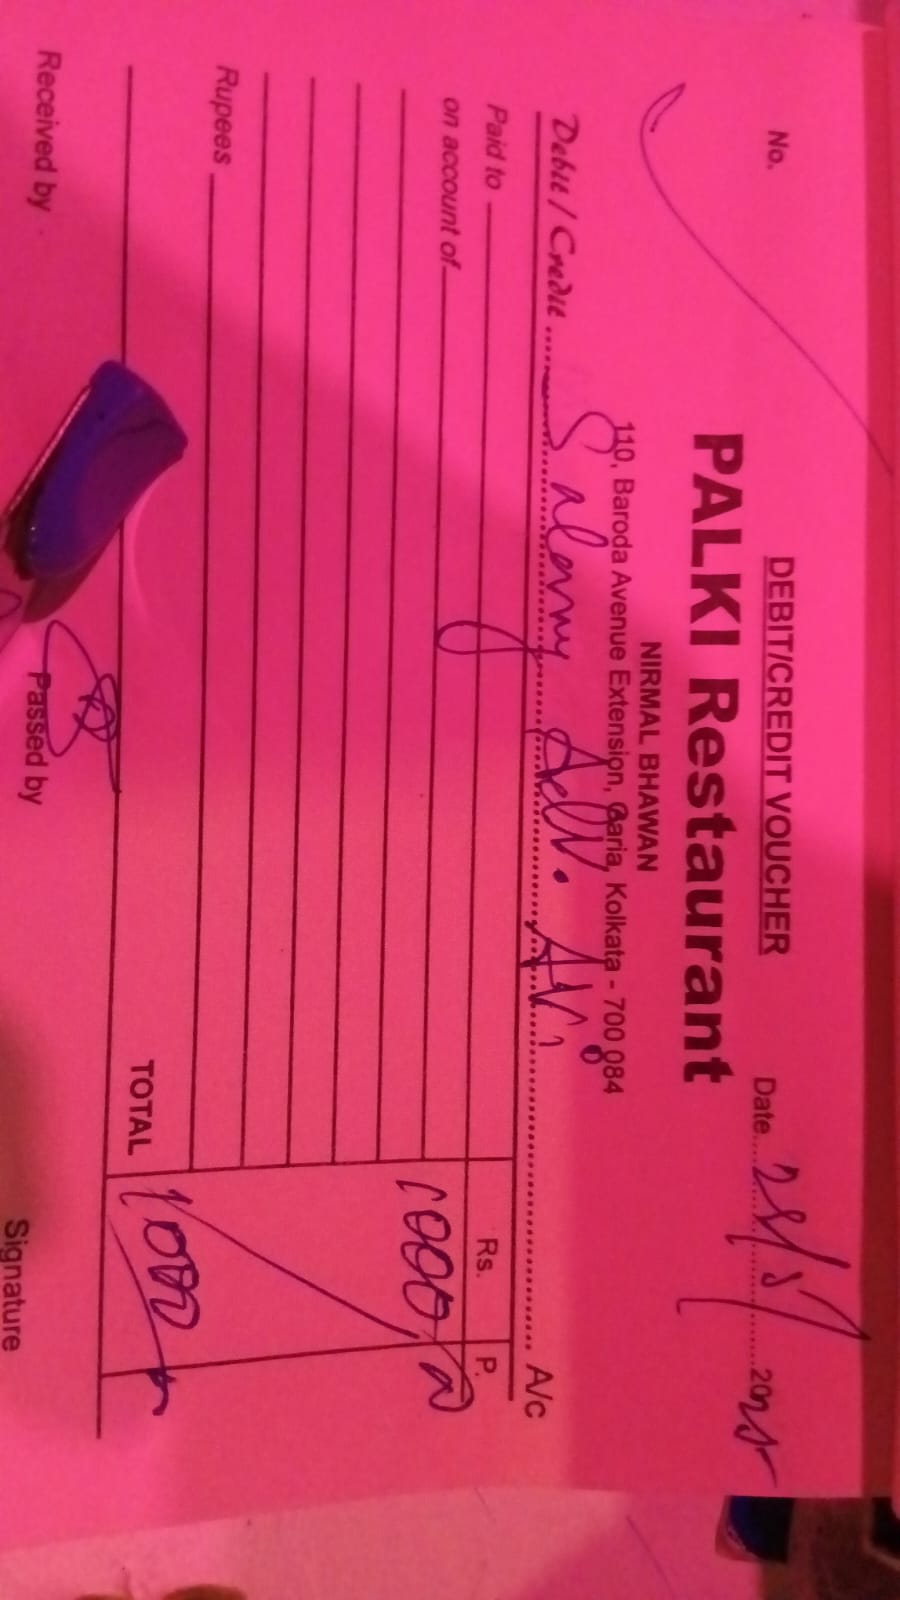 DEBIT/CREDIT VOUCHER
No.
Date 25/5/2025
PALKI Restaurant
NIRMAL BHAWAN
110, Baroda Avenue Extension, Garia, Kolkata - 700 084
Debit / Credit Salary Adv. A/c
Paid to Rs. P.
on account of 1000/
Rupees
TOTAL 1000/
Received by
Passed by
Signature